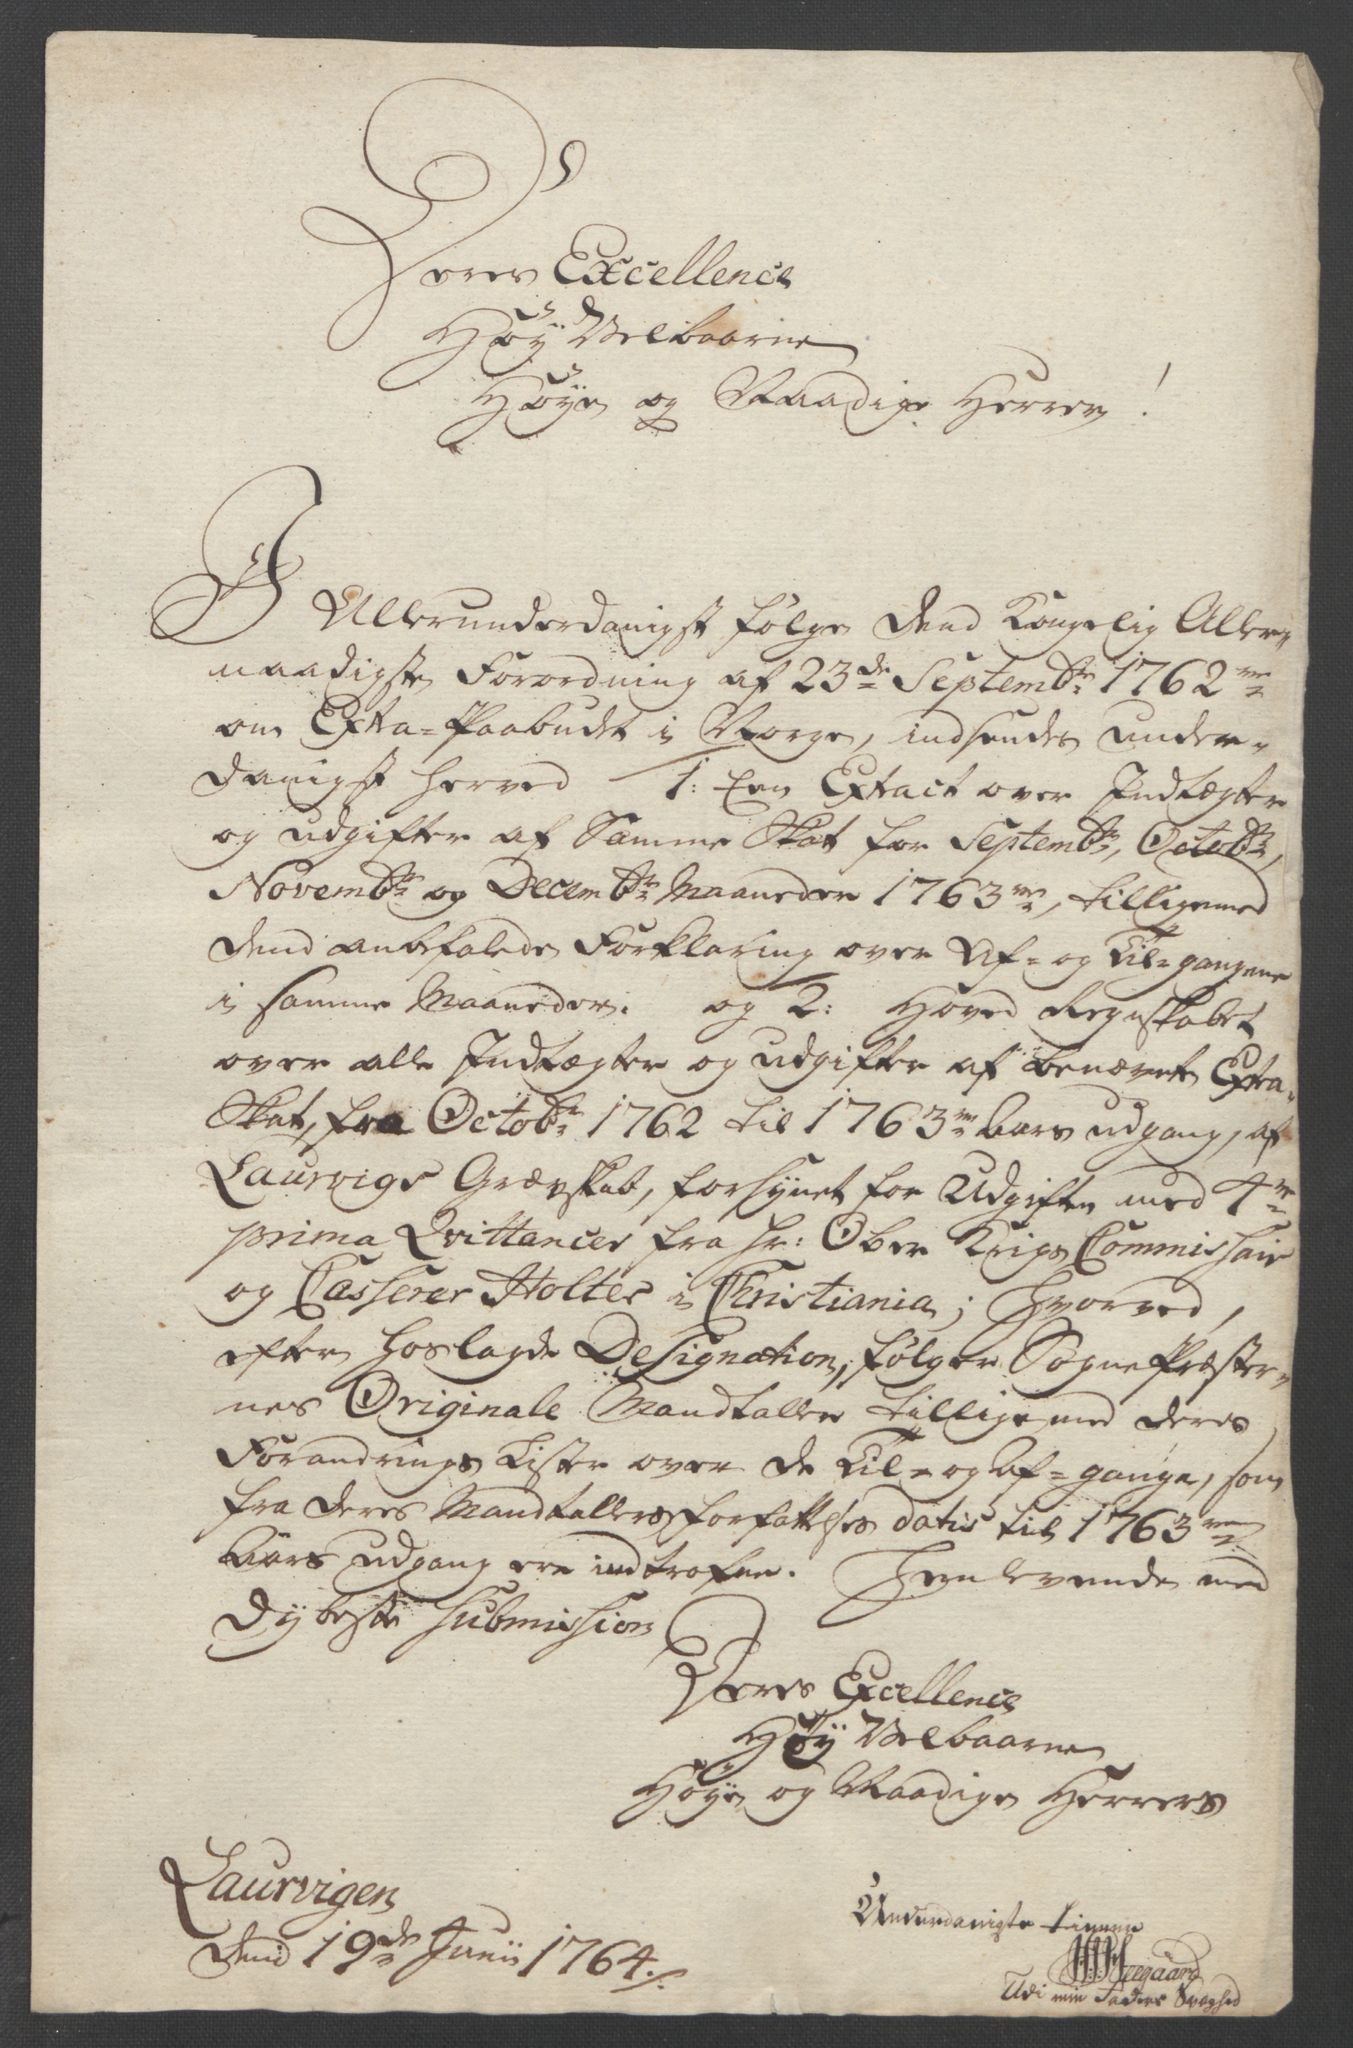 Deres Excellence
Høy Velbaarne
Høye og Naadige Herrer!
I Allerunderdanigst følge dend Kongelig Aller-
naadigste Forordning af 23de Septembr: 1762
om Extra-Paabudet i Norge, indsendes under-
danigst herved 1: Een Extract over Indtægter
og udgifter af Samme Skat for Septembr:, Octobr:,
Novembr: og Decembr: Maaneder 1763, tilligemed
dend anbefalede Forklaring over Af- og Til-gangene
i samme Maaneder. og 2: Hoved Regnskabet
over alle Indtægter og udgifter af benævnte Extra-
Skat, fra Octobr: 1762 til 1763 Aars udgang, af
Laurvigs Grævskab, forsynet for Udgiften med 4re
prima Qvittancer fra Hr: Ober Krigs Commissair
og Casserer Holter i Christiania; Hvorved,
efter hoslagde Designation, følger SognePræster-
nes Originale Mandtaller tilligemed deres
Forandrings Lister over de Til- og Af-gange, som
fra deres Mandtallers forfattelses datis til 1763
Aars udgang ere indtrofne. Henlevende med
dybeste Submission
Deres Excellence
Høy Velbaarne
Høye og Naadige Herrers
Laurvigen
dend 19de Junii 1764.
Underdanigste tienere
Udi min Faders Svaghed